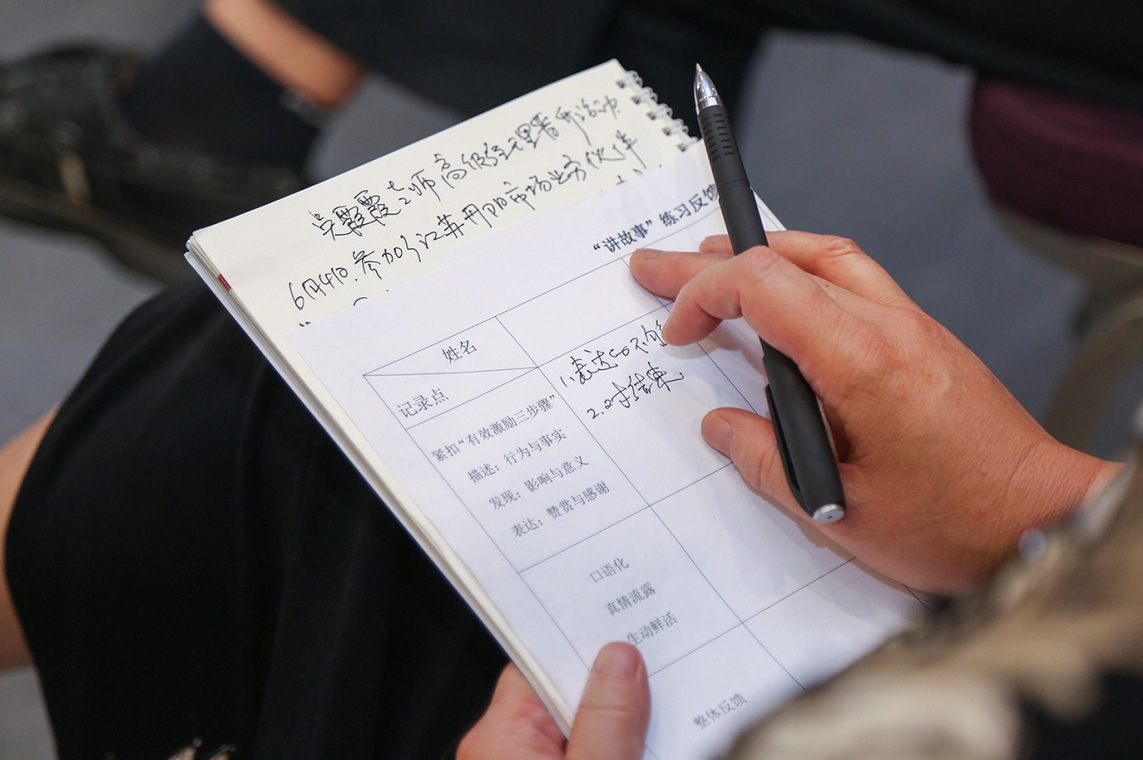 吴霞霞老师高级经理晋升洽冲
6月4日.参加了江苏丹阳市场业务伙伴
“讲故事”练习反馈
姓名
记录点
1.表达
2.对结束.
紧扣“有效激励三步骤”
描述：行为与事实
发现：影响与意义
表达：赞赏与感谢
口语化
真情流露
生动鲜活
整体反馈